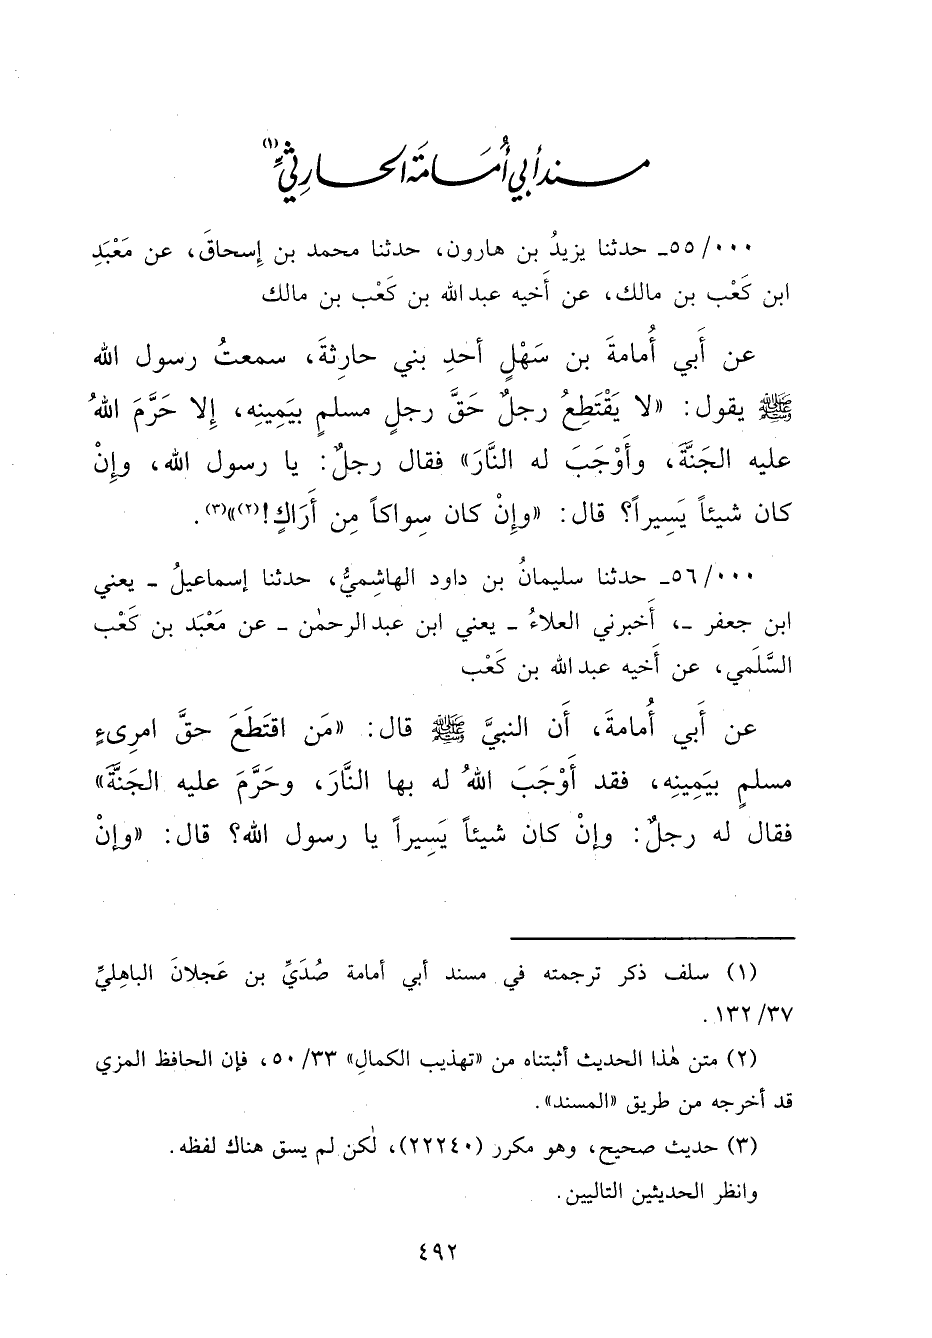 مسند أبي أُمَامَة الحارِثيِّ (١)
٠٠٠/ ٥٥ـ حدثنا يزيدُ بن هارون، حدثنا محمد بن إسحاقَ، عن مَعْبَدِ
ابن كَعْب بن مالك، عن أَخيه عبد الله بن كَعْب بن مالك
عن أَبي أُمامةَ بن سَهْلٍ أحدِ بني حارثةَ، سمعتُ رسول الله
ﷺ يقول: «لا يَقْتَطِعُ رجلٌ حَقَّ رجلٍ مسلمٍ بيَمِينِه، إِلا حَرَّمَ اللهُ
عليه الجَنَّةَ، وأَوْجَبَ له النَّارَ» فقال رجلٌ: يا رسول الله، وإِنْ
كان شيئاً يَسِيراً؟ قال: «وإِنْ كان سِواكاً مِن أَراكٍ!(٢)»(٣).
٠٠٠/ ٥٦ـ حدثنا سليمانُ بن داود الهاشميُّ، حدثنا إسماعيلُ ـ يعني
ابن جعفر ـ، أَخبرني العلاءُ ـ يعني ابن عبد الرحمٰن ـ عن مَعْبَد بن كَعْب
السَّلَمي، عن أَخيه عبد الله بن كَعْب
عن أَبي أُمامةَ، أَن النبيَّ ﷺ قال: «مَن اقتَطَعَ حقَّ امرِىءٍ
مسلمٍ بيَمِينِه، فقد أَوْجَبَ اللهُ له بها النَّارَ، وحَرَّمَ عليه الجَنَّةَ»
فقال له رجلٌ: وإنْ كان شيئاً يَسِيراً يا رسول الله؟ قال: «وإنْ
(١) سلف ذكر ترجمته في مسند أبي أمامة صُدَيِّ بن عَجلانَ الباهِليِّ
٣٧/ ١٣٢ .
(٢) متن هٰذا الحديث أثبتناه من «تهذيب الكمال» ٣٣/ ٥٠، فإن الحافظ المزي
قد أخرجه من طريق «المسند».
(٣) حديث صحيح، وهو مكرر (٢٢٢٤٠)، لٰكن لم يسق هناك لفظه.
وانظر الحديثين التاليين.
٤٩٢